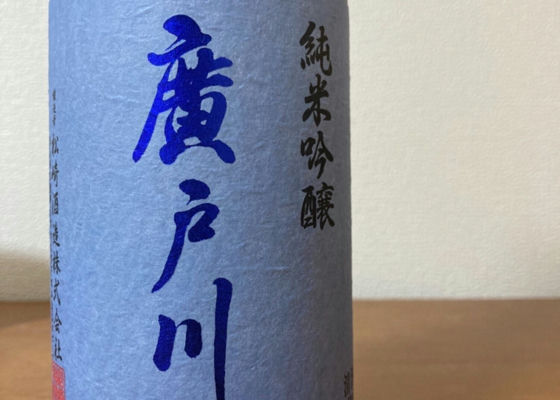 純米吟醸
廣戸川
松崎酒造株式会社